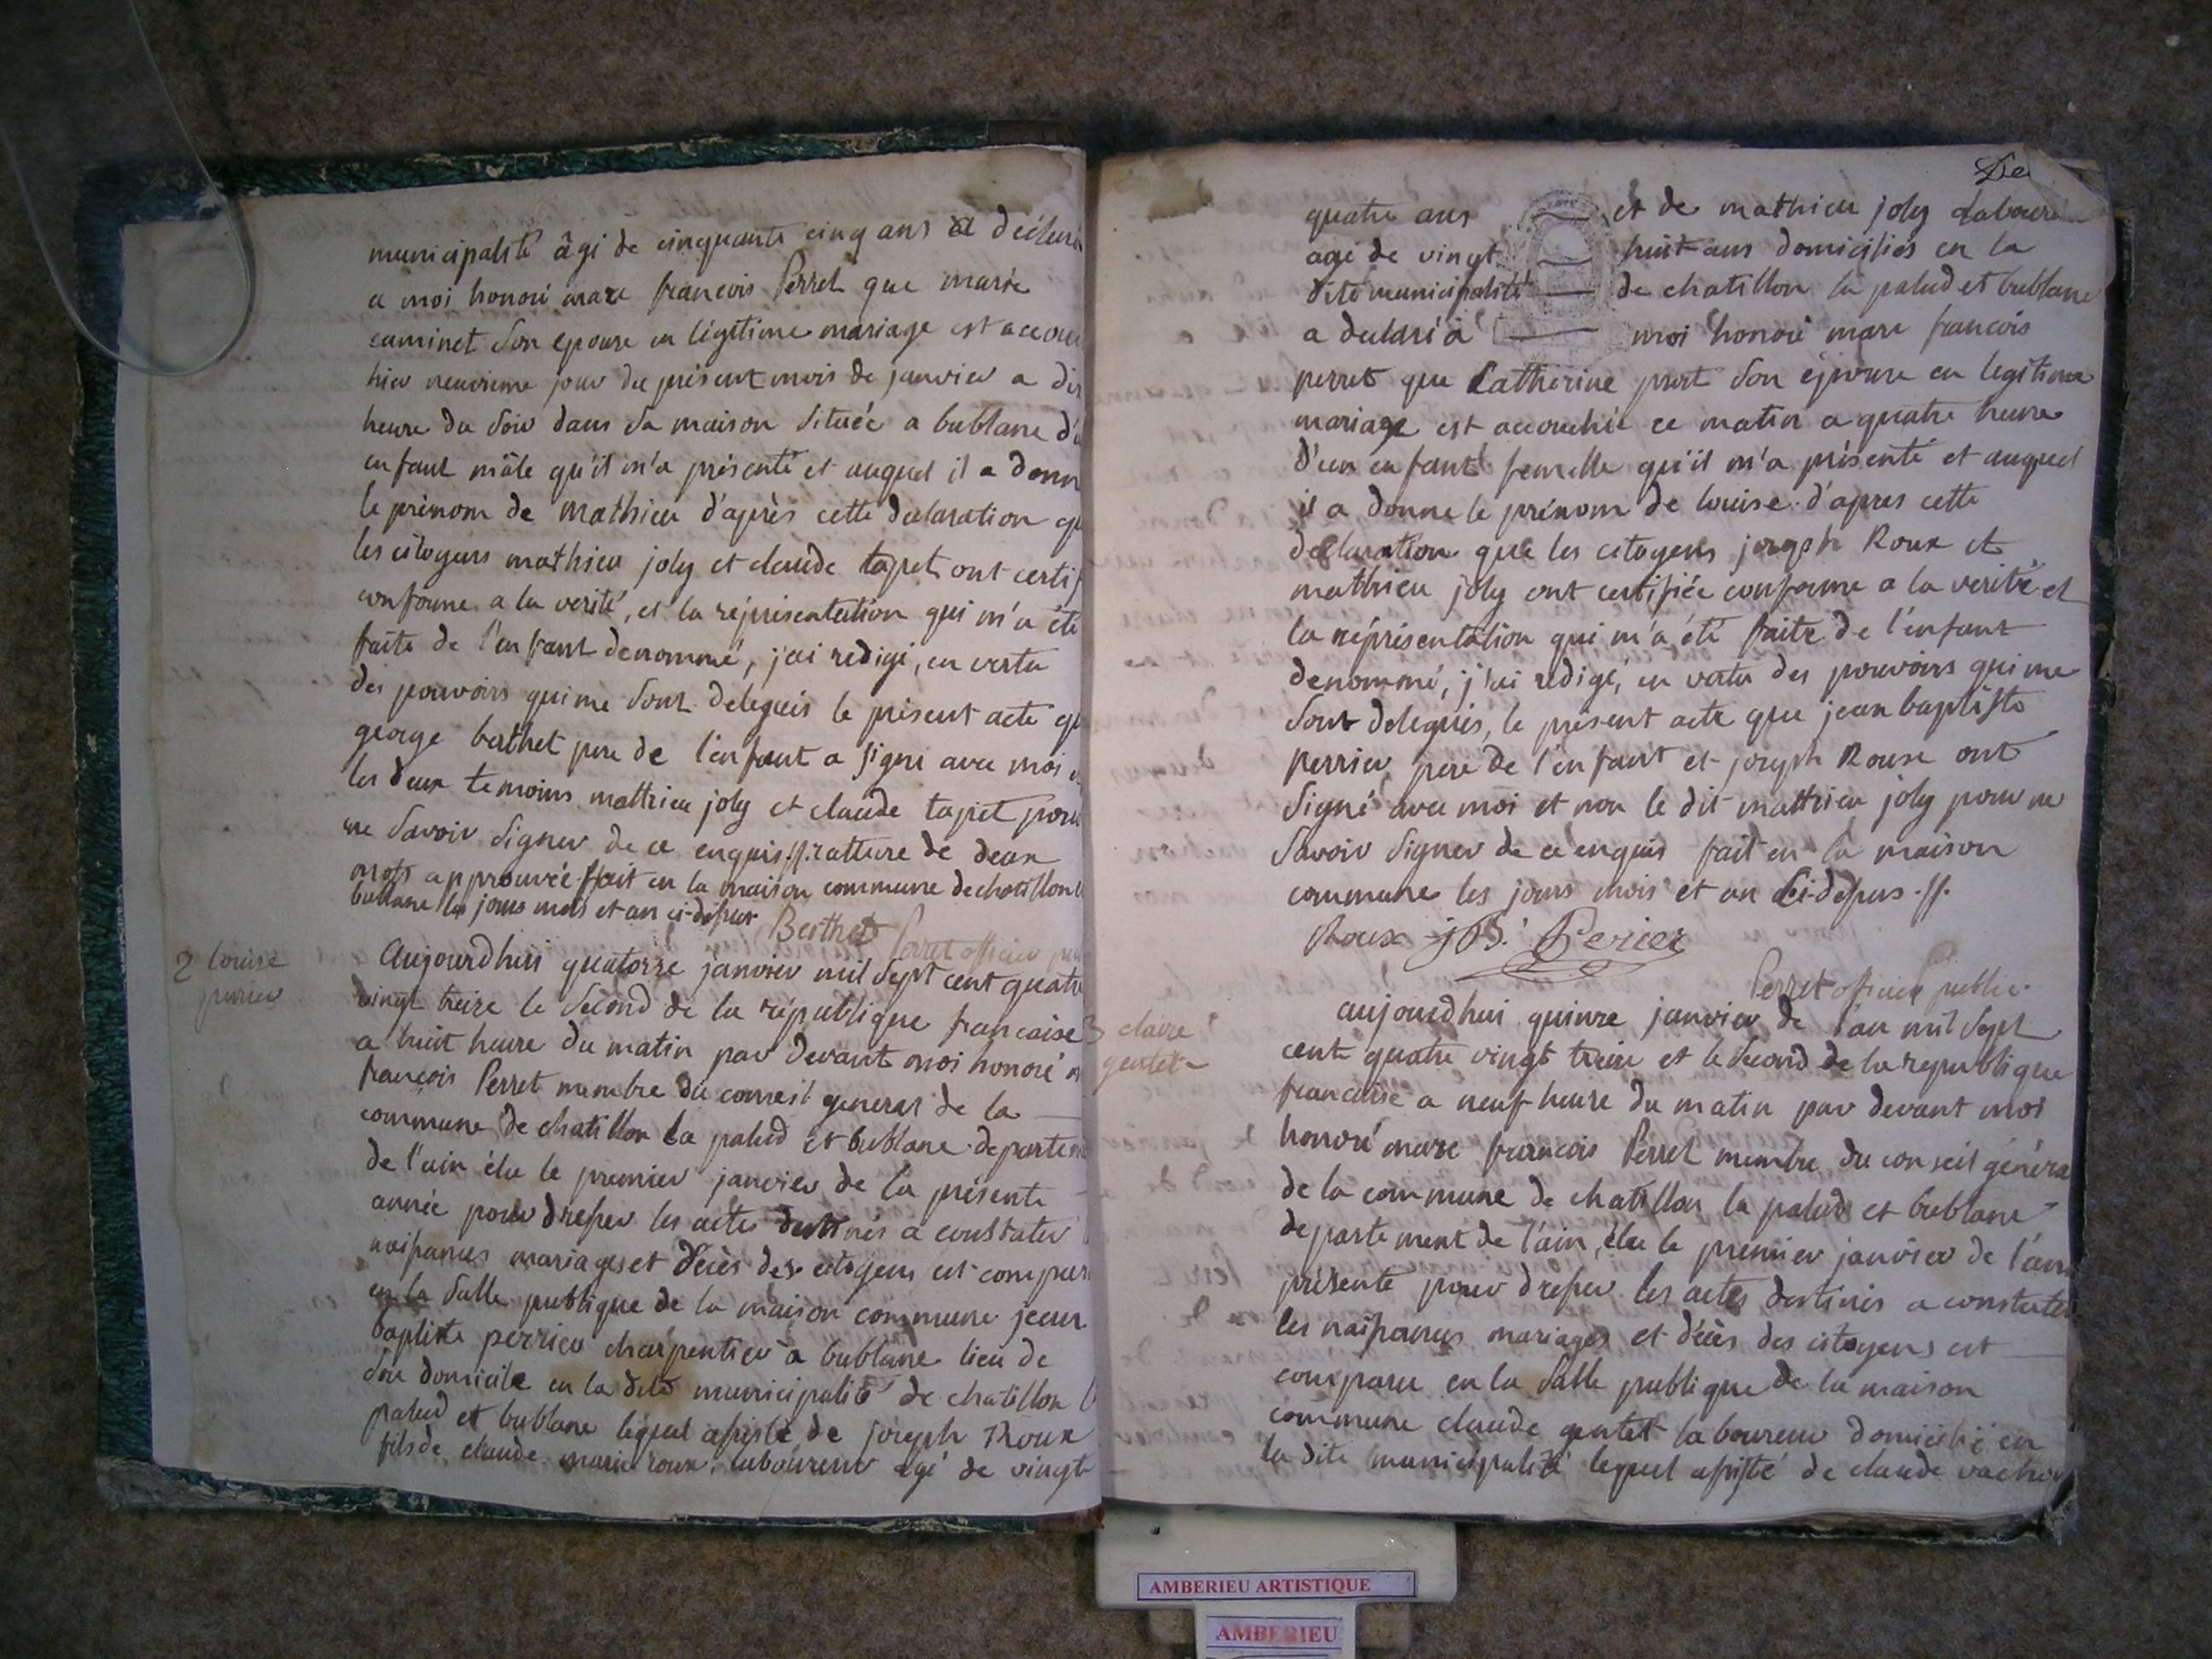 municipalité âgé de cinquante cinq ans a déclaré
a moi honoré marc françois Perret que marie
caminet son epouse en légitime mariage est accou
hier neuvieme jour du présent mois de janvier a dix
heure du soir dans sa maison située a bublane d'u
enfant mâle qu'il m'a présenté et auquel il a donn
le prénom de mathieu d'après cette declaration qu
les citoyens mathieu joly et claude tapet ont certif
conforme a la verité, et la représentation qui m'a été
faite de l'enfant denommé, j'ai redigé, en vertu
des pouvoirs qui me sont delegués le present acte qu
george berthet pere de l'enfant a signé avec moi
les deux temoins mathieu joly et claude tapet pour
ne savoir signer de ce enquis .//. ratture de deux
mots approuvée fait en la maison commune de chatillon
bublane les jours mois et an ci-dessus Berthet
Perret officier pu
2 louise
perrier
Aujourdhui quatorze janvier mil sept cent quatre
vingt treize le second de la république francaise
a huit heure du matin par devant moi honoré m
françois Perret membre du conseil general de la
commune de chatillon la palud et bublane departem
de l'ain élu le premier janvier de la présente
année pour dresser les actes destinés a constater
naissances mariages et décès des citoyens est compar
en la salle publique de la maison commune jean
baptiste perrier charpentier a bublane lieu de
son domicile en la dite municipalité de chatillon l
palud et bublane lequel assisté de joseph Roux
fils de claude marie roux, laboureur agé de vingt
De
quatre ans et de mathieu joly laboureur
agé de vingt huit ans domiciliés en la
dite municipalité de chatillon la palud et bublane
a declaré a moi honoré marc francois
perret que Catherine prost son épouse en legitime
mariage est accouchée ce matin a quatre heure
d'un enfant femelle qu'il m'a présenté et auquel
il a donne le prénom de louise d'apres cette
declaration que les citoyens joseph Roux et
mathieu joly ont certifiée conforme a la verité et
la représentation qui m'a été faite de l'enfant
denommé, j'ai redigé, en vertu des pouvoirs qui me
sont delegués, le présent acte que jean baptiste
perrier pere de l'enfant et joseph Roux ont
signé avec moi et non le dit mathieu joly pour ne
savoir signer de ce enquis fait en la maison
commune les jours mois et an ci-dessus .//.
Roux JB. Perier
Perret officier public.
3 claire
gentet
aujourdhui quinze janvier de l'an mil sept
cent quatre vingt treize et le second de la republique
francaise a neuf heure du matin par devant moi
honoré marc francois Perret membre du conseil généra
de la commune de chatillon la palud et bublane
departement de l'ain, élu le premier janvier de l'ann
présente pour dresser les actes destinés a constater
les naissances mariages et décès des citoyens est
comparu en la salle publique de la maison
commune claude gentet laboureur domicilié en
la dite municipalité lequel assisté de claude vachon
AMBERIEU ARTISTIQUE
AMBERIEU